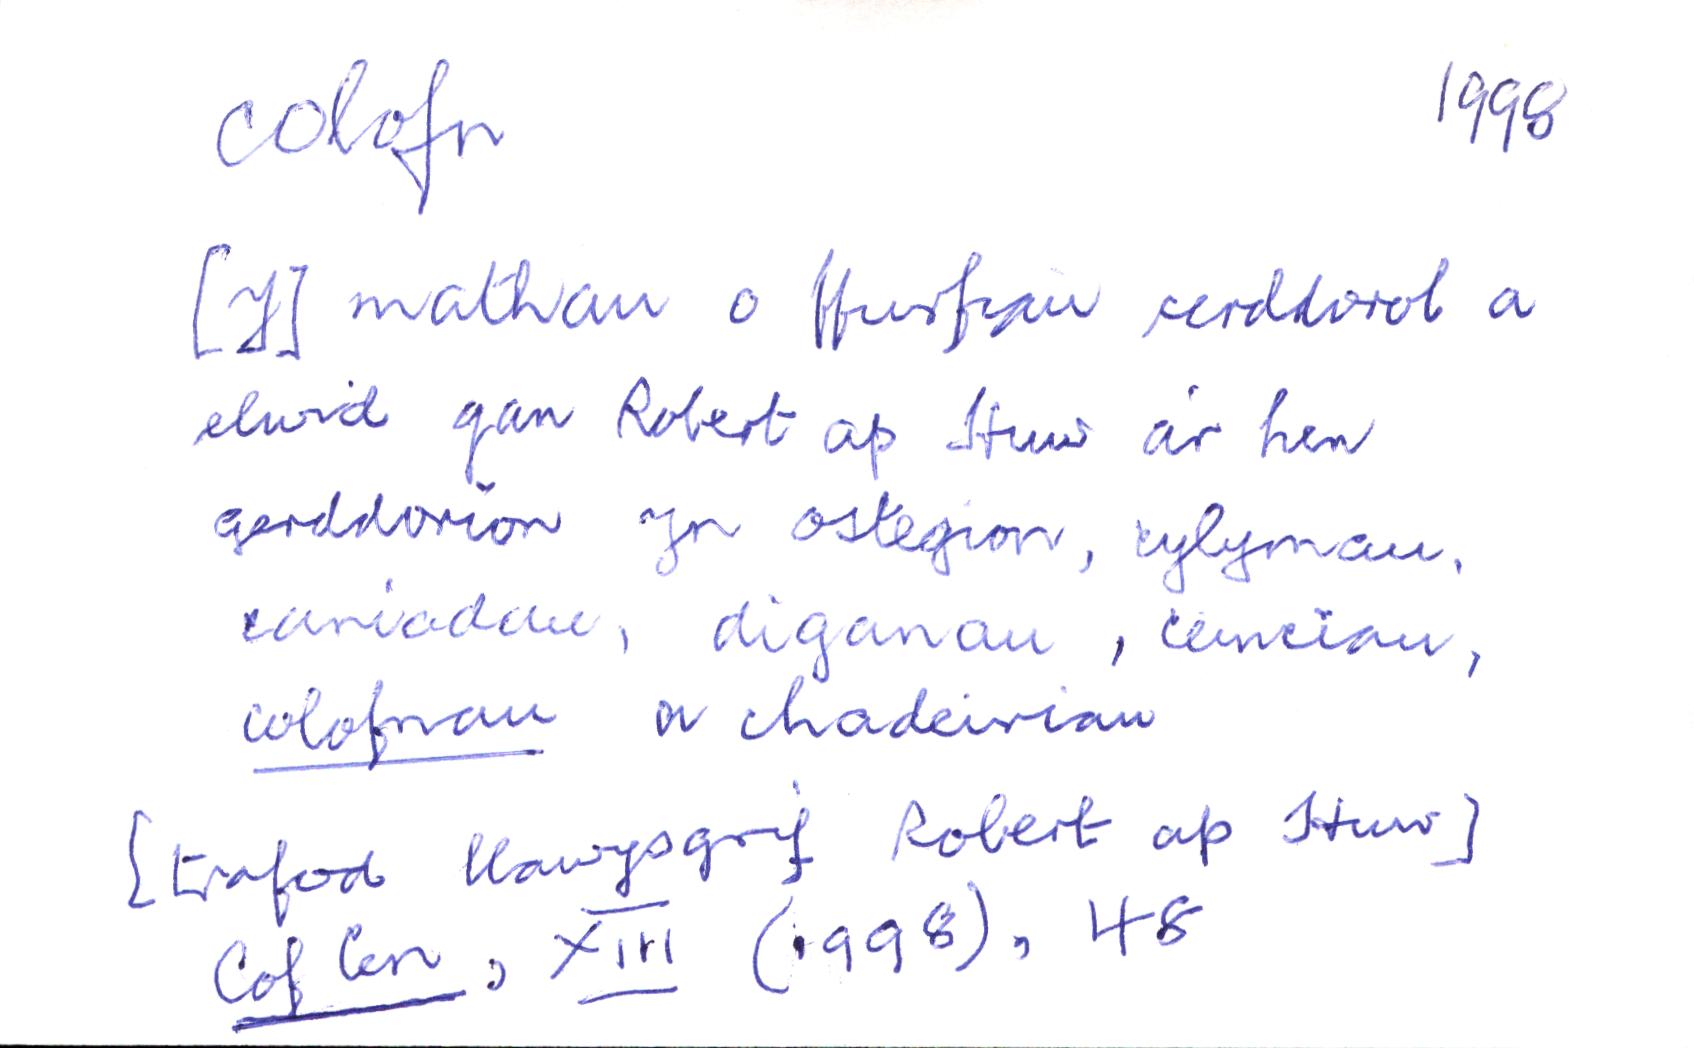 colofn 1998
[Y] mathau o ffurfiau cerddorol a
elwid gan Robert ap Huw a'r hen
gerddorion yn ostegion, cylymau,
caniadau, diganau, ceinciau,
colofnau a chadeiriau
[trafod llawysgrif Robert ap Huw]
Cof Cen, XIII (1998), 48